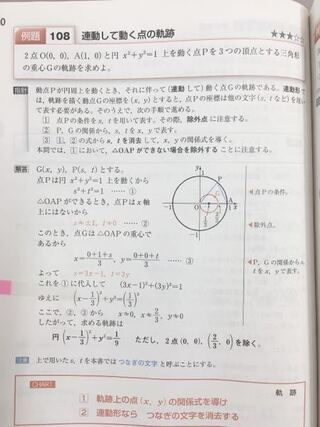 例題 108 連動して動く点の軌跡 ★★★☆☆
2点 O(0, 0)，A(1, 0) と円 x²+y²=1 上を動く点Pを3つの頂点とする三角形
の重心Gの軌跡を求めよ。
指針 動点Pが円周上を動くとき，それに伴って(連動して)動く点Gの軌跡である。連動形で
は，軌跡を描く動点Gの座標を (x, y) とすると，点Pの座標は他の文字 (s, t など) を用い
て表す必要がある。そのうえで，次の手順で進める。
1 点Pの条件を s, t を用いて表す。その際，除外点に注意する。
2 P，Gの関係から，s, t を x, y で表す。
3 1，2の式から s, t を消去して，x, y の関係式を導く。
本問では，1において，△OAP ができない場合を除外することに注意する。
解答 G(x, y)，P(s, t) とする。
点Pは円 x²+y²=1 上を動くから
s²+t²=1 …… ①
△OAP ができるとき，点Pはx軸
上にはないから
s≠±1, t≠0 …… ②
このとき，点Gは △OAP の重心で
あるから
x=(0+1+s)/3, y=(0+0+t)/3 …… ③
よって s=3x-1, t=3y
これを①に代入して (3x-1)²+(3y)²=1
ゆえに (x-1/3)²+y²=(1/3)²
ここで，②，③から x≠0, x≠2/3, y≠0
したがって，求める軌跡は
円 (x-1/3)²+y²=1/9 ただし，2点 (0, 0)，(2/3, 0) を除く。
y
1
P
G
-1
O
1/3
2/3
A
1
x
-1
◀点Pの条件。
◀除外点。
◀P，Gの関係から
t を x, y で表す。
注意 上で用いた s, t を本書では つなぎの文字 と呼ぶことにする。
CHART 軌跡
1 軌跡上の点 (x, y) の関係式を導け
2 連動形なら つなぎの文字を消去する